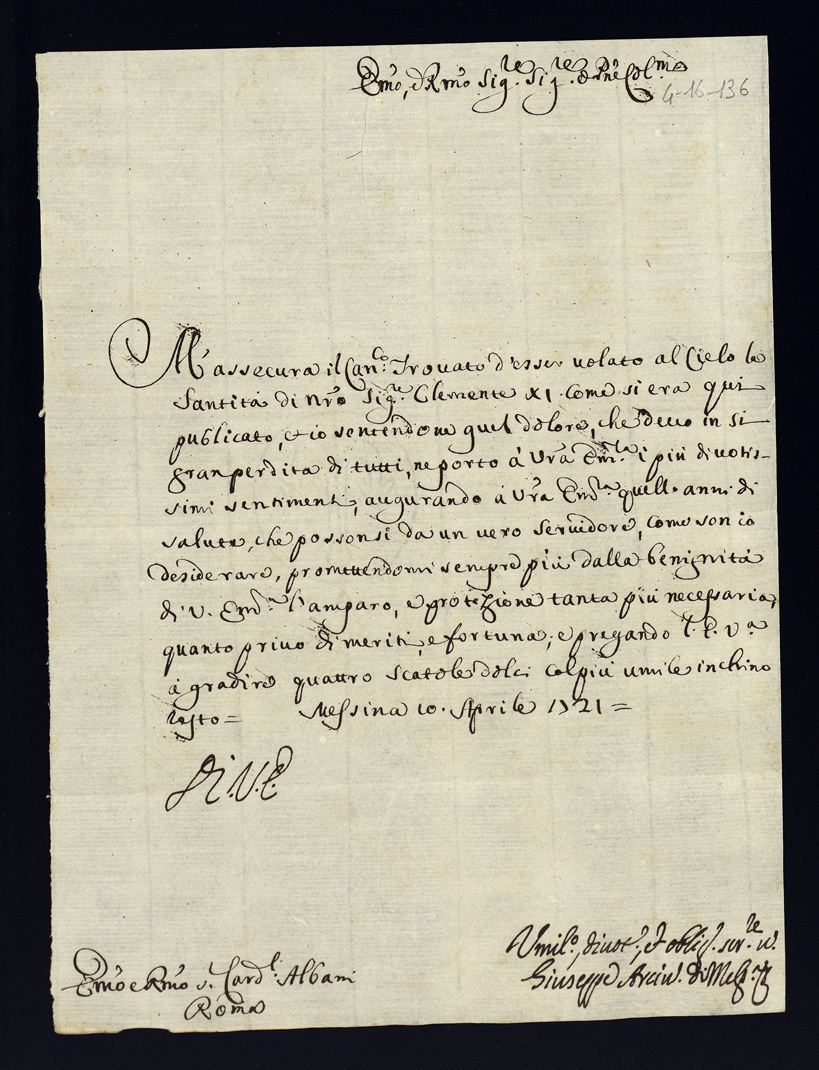 Em̃o, e Rm̃o Sig.re Sig.re e Pñe Col.mo
4-16-136
M'assecura il Can.co Trovato d'esser volato al Cielo la
Santità di Nr̃o Sig.re Clemente XI. come si era qui
publicato, et io sentendone quel dolore, che devo in sì
gran perdita di tutti, ne porto à Vr̃a Em.za i più divotis-
simi sentimenti, augurando à Vr̃a Em.za quell'anni di
salute, che possonsi da un vero servidore, come son io
desiderare, promettendomi sempre più dalla benignità
di V. Em.za l'amparo, e protezione tanta più necessaria,
quanto privo di meriti, e fortuna; e pregando l'E. V.a
à gradire quattro scatole dolci col più umile inchino
resto = Messina 10. Aprile 1721 =
Di V. E.
Umil.o, divot.o, et oblig.o ser.re v.
Giuseppe Arciv. di Mess.a
Em̃o e Rm̃o S. Card.l Albani
Roma